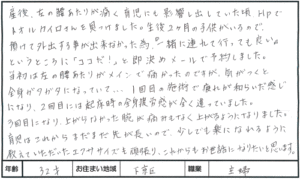 産後、左の腰あたりが痛く、育児にも影響し出していた頃、HPで
トオルカイロさんを見つけました。生後2ヶ月の子供がいるので、
預けて外出する事が出来なかった為、"一緒に連れて行っても良い"
というところに「ココだ!」と即決めメールで予約しました。
当初は左の腰あたりがメインで痛かったのですが、気がつくと
全身ガリガリになっていて… 1回目の施術で疲れが和らいだ感じ
になり、2回目には起床時の全身疲労感が全く違っていました。
3回目になり、上がらなかった腕が痛みもなく上がるようになりました。
育児はこれからまだまだ先が長いので、少しでも楽になれるように
教えていただいたエクササイズも頑張り、これからもお世話になりたいと思います。
年齢 32才 お住まい地域 下京区 職業 主婦